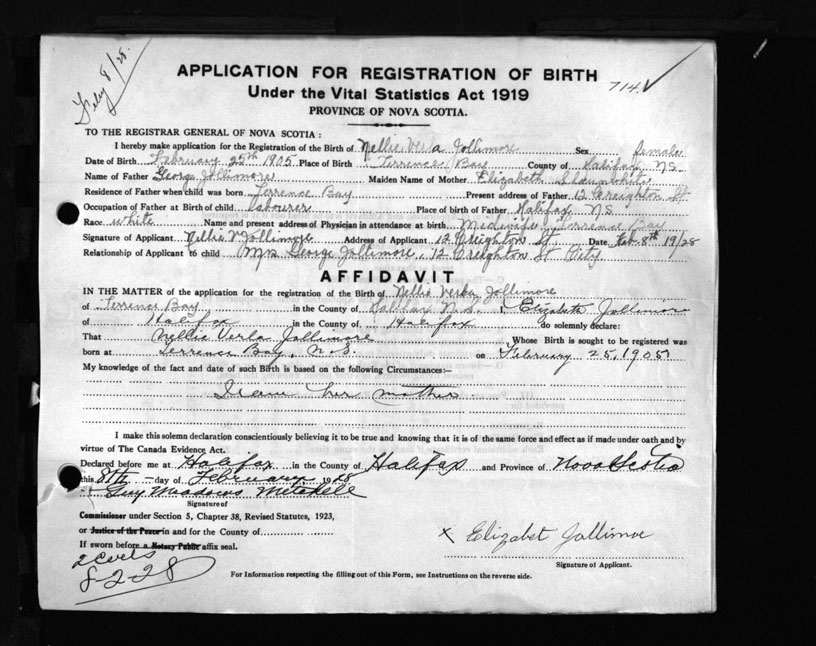 Feby 8/28.
714 ✓
APPLICATION FOR REGISTRATION OF BIRTH
Under the Vital Statistics Act 1919
PROVINCE OF NOVA SCOTIA.
TO THE REGISTRAR GENERAL OF NOVA SCOTIA:
I hereby make application for the Registration of the Birth of Nellie Verla Jollimore Sex female
Date of Birth February 25th 1905 Place of Birth Terrence Bay County of Halifax N.S.
Name of Father George Jollimore Maiden Name of Mother Elizabeth
Residence of Father when child was born Terrence Bay Present address of Father 12 Creighton St
Occupation of Father at Birth of child Labourer Place of Birth of Father Halifax N.S.
Race White Name and present address of Physician in attendance at birth Midwife, Terrence Bay
Signature of Applicant Nellie V Jollimore Address of Applicant 12 Creighton St. Date Feb. 8th 1928
Relationship of Applicant to child Mrs George Jollimore, 12 Creighton St City
AFFIDAVIT
IN THE MATTER of the application for the registration of the Birth of Nellie Verla Jollimore
of Terrence Bay in the County of Halifax N.S. I, Elizabeth Jollimore
of Halifax in the County of Halifax do solemnly declare:
That Nellie Verla Jollimore , Whose Birth is sought to be registered was
born at Terrence Bay, N.S. on February 25, 1905
My knowledge of the fact and date of such Birth is based on the following Circumstances:—
I am her mother.
I make this solemn declaration conscientiously believing it to be true and knowing that it is of the same force and effect as if made under oath and by
virtue of The Canada Evidence Act.
Declared before me at Halifax in the County of Halifax and Province of Nova Scotia
this 8th day of February 1928
Guy Meadows Mitchell
Signature of
Commissioner under Section 5, Chapter 38, Revised Statutes, 1923,
or Justice of the Peace in and for the County of
If sworn before a Notary Public affix seal.
x Elizabet Jollimoe
Signature of Applicant.
2 Certs
8-2-28
For Information respecting the filling out of this Form, see Instructions on the reverse side.